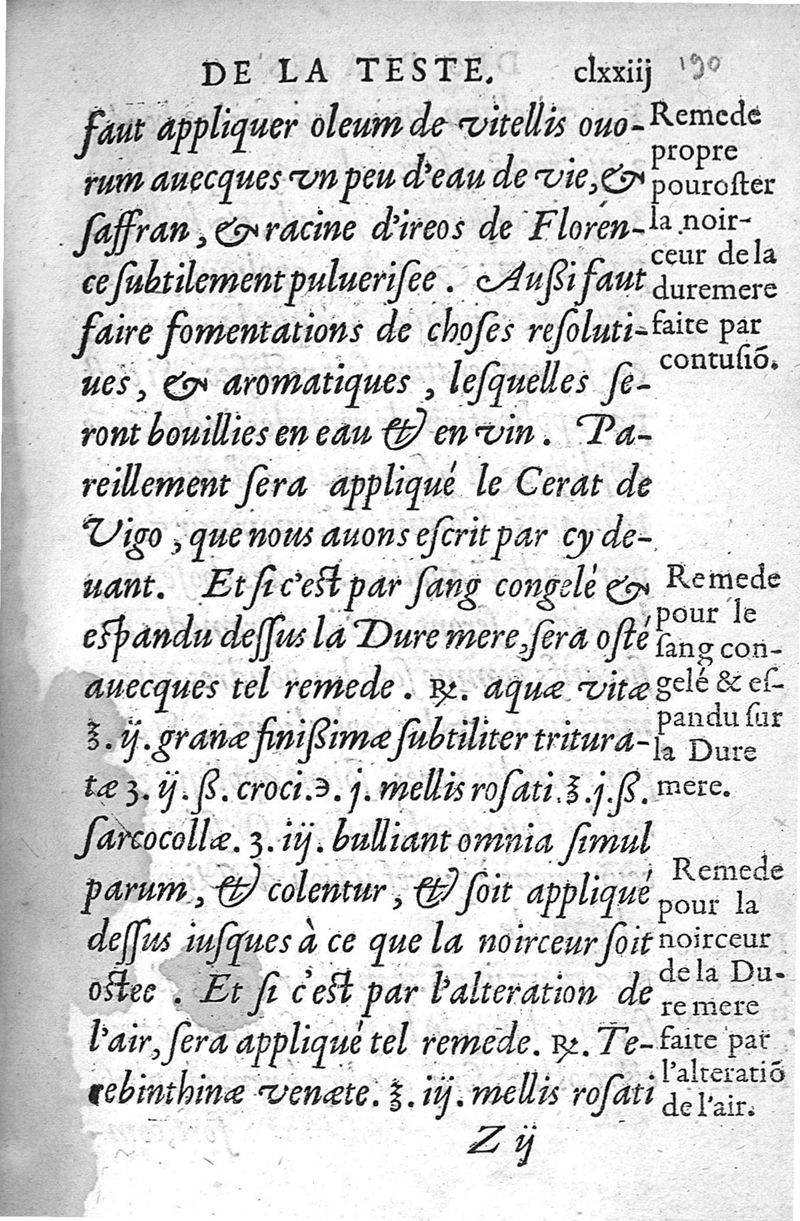 DE LA TESTE. clxxiij 190
faut appliquer oleum de vitellis ouo-
rum auecques vn peu d'eau de vie, &
ſaffran, & racine d'ireos de Floren-
ce ſubtilement pulueriſee. Außi faut
faire fomentations de choſes reſoluti-
ues, & aromatiques, leſquelles ſe-
ront bouillies en eau & en vin. Pa-
reillement ſera appliqué le Cerat de
Vigo, que nous auons eſcrit par cy de-
uant. Et ſi c'eſt par ſang congelé &
eſpandu deſſus la Dure mere, ſera oſté
auecques tel remede. ℞. aquæ vitæ
℥. ij. granæ finißimæ ſubtiliter tritura-
tæ ʒ. ij. ß. croci. ℈. j. mellis roſati. ℥. j. ß.
ſarcocollæ. ʒ. iij. bulliant omnia ſimul
parum, & colentur, & ſoit appliqué
deſſus iuſques à ce que la noirceur ſoit
oſtee. Et ſi c'eſt par l'alteration de
l'air, ſera appliqué tel remede. ℞. Te-
rebinthinæ venæte. ℥. iij. mellis roſati
Z ij
Remede
propre
pouroſter
la noir-
ceur de la
duremere
faite par
contuſiō.
Remede
pour le
ſang con-
gelé & eſ-
pandu ſur
la Dure
mere.
Remede
pour la
noirceur
de la Du-
re mere
faite par
l'alteratiō
de l'air.